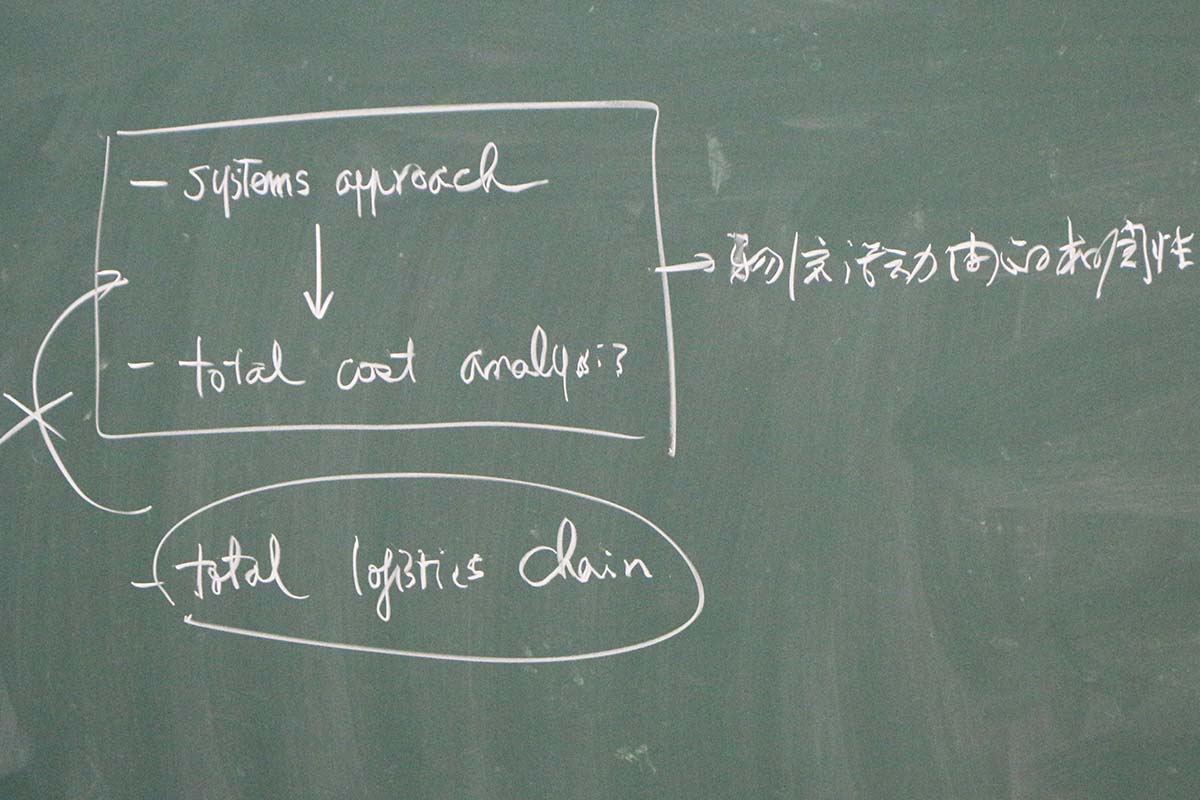 - systems approach
→ 物流活动间的相关性
- total cost analysis
- total logistics chain